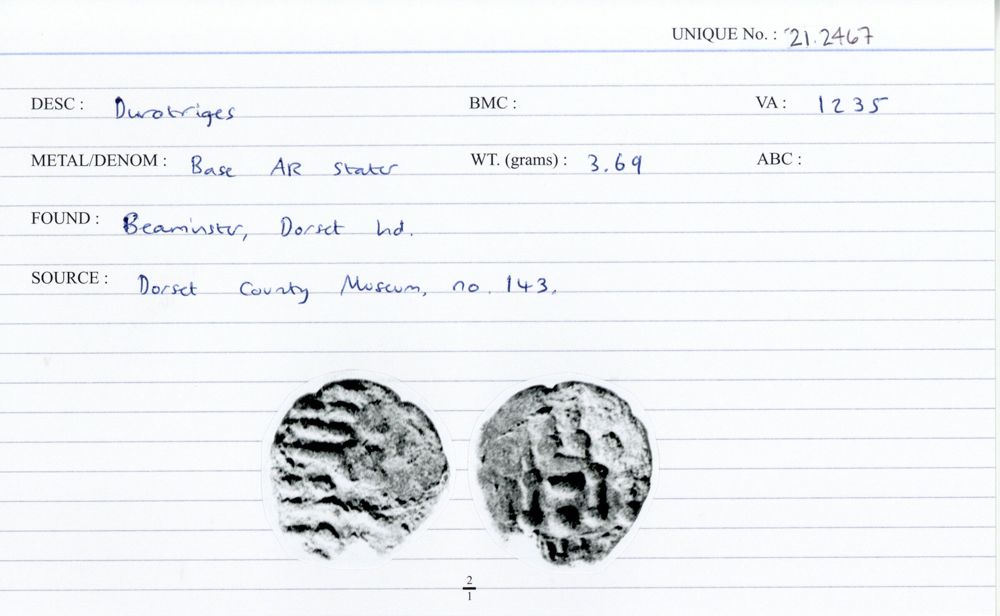 UNIQUE No. : 21.2467
DESC : Durotriges BMC : VA : 1235
METAL/DENOM : Base AR stater WT. (grams) : 3.69 ABC :
FOUND : Beaminster, Dorset hd.
SOURCE : Dorset County Museum, no. 143.
2
1